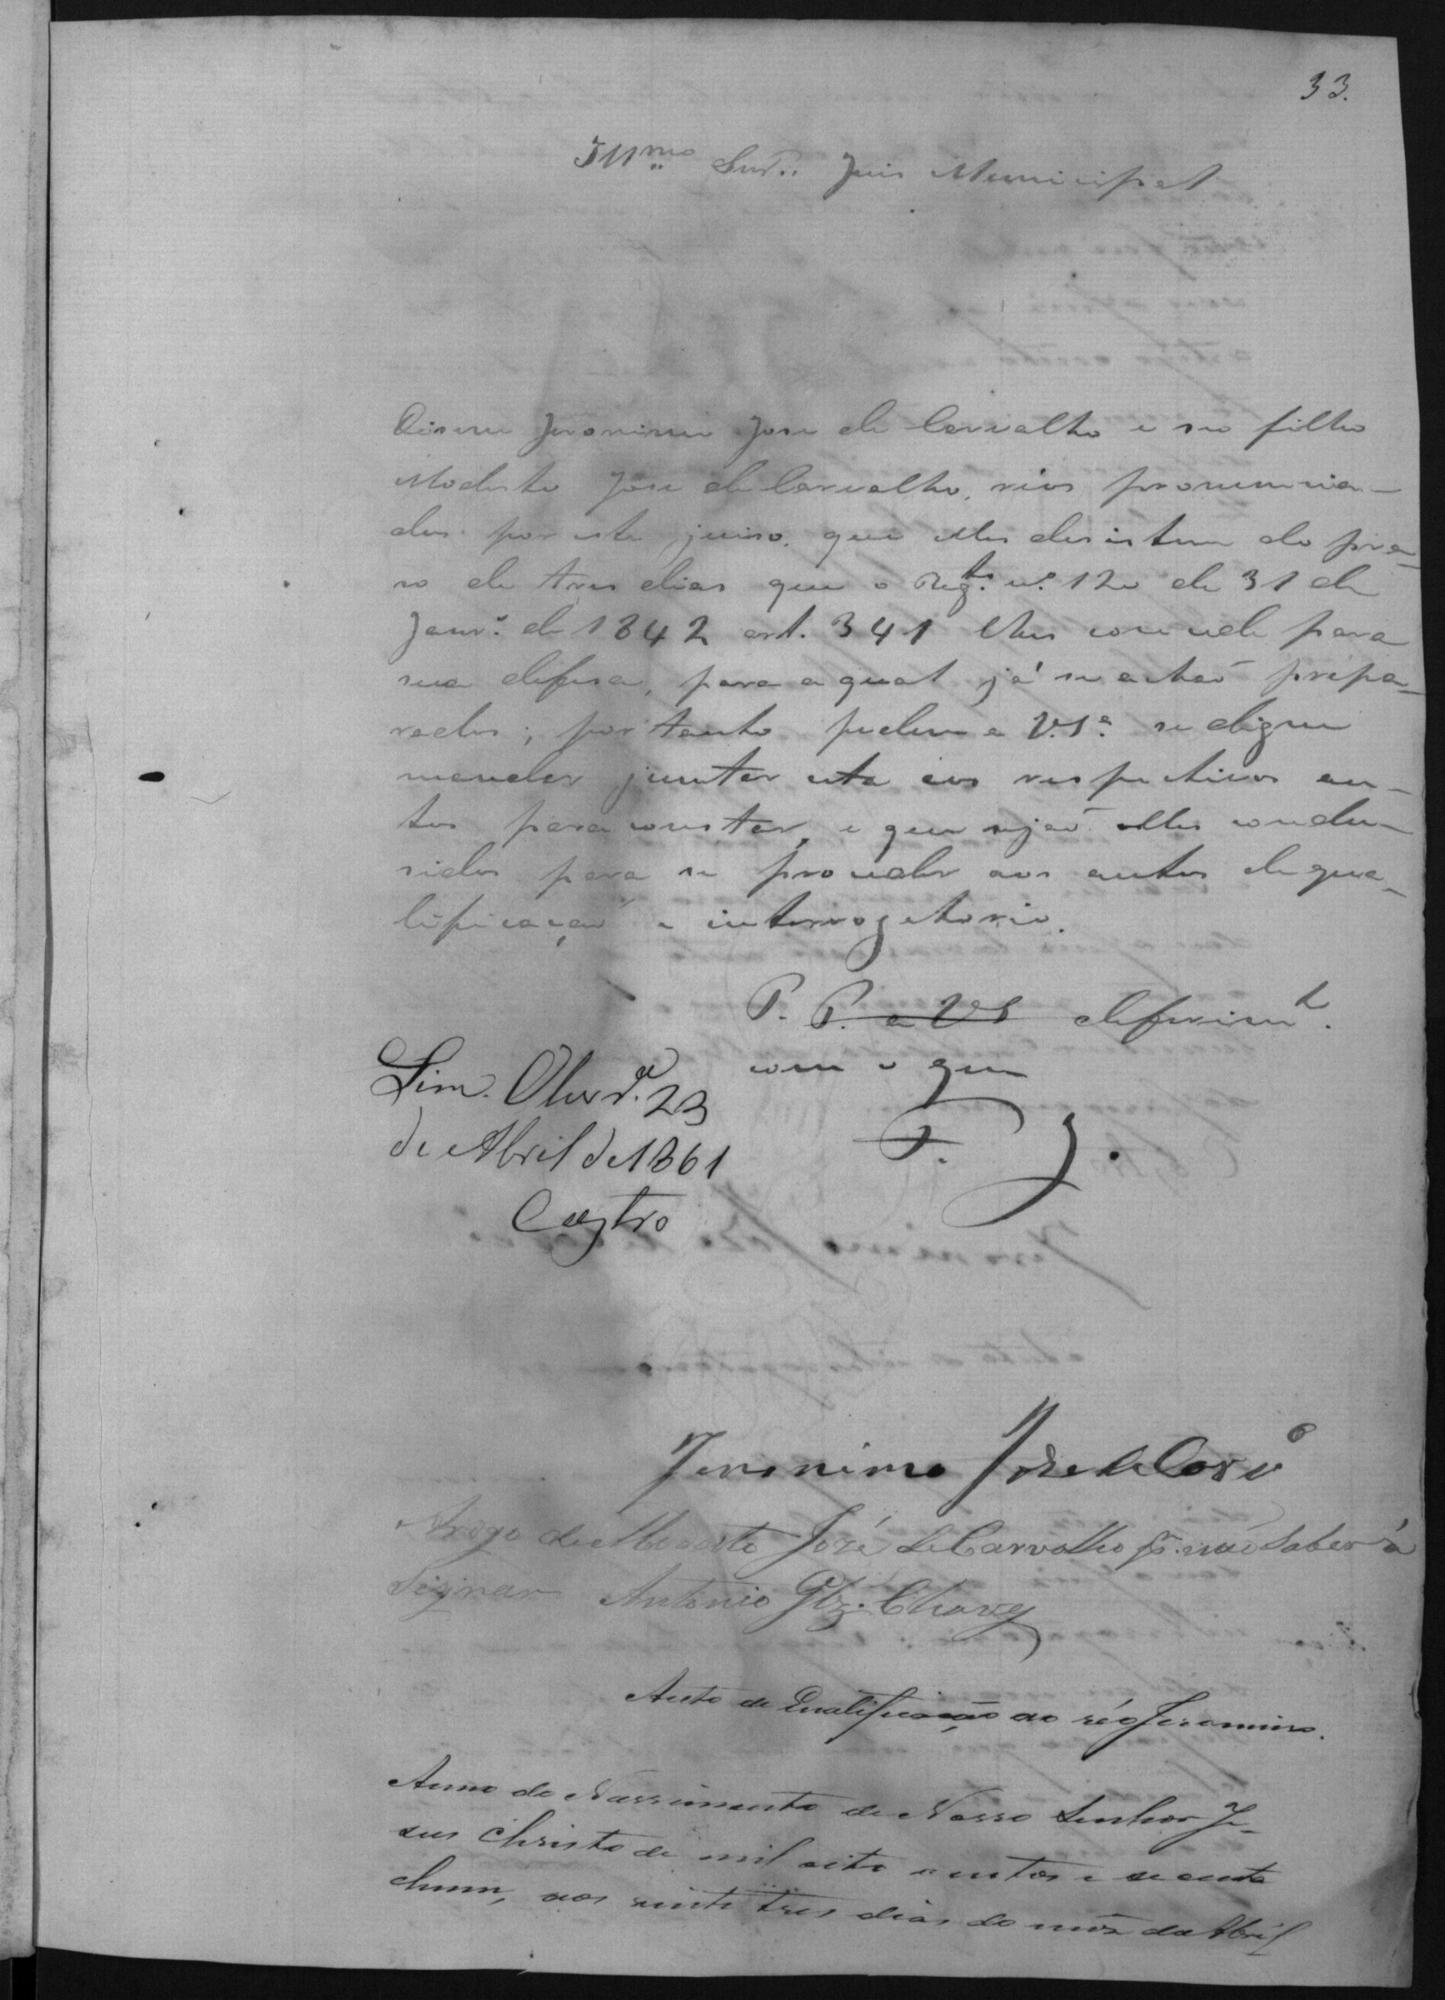 33.
Illmo Snr. Juis Municipal
Disem Jeronimo Jose de Carvalho e seo filho
Modesto Jose de Carvalho, reos pronuncia-
dos por este juiso, que elles desistem do pra-
so de tres dias que o Regto. nº 120 de 31 de
Janrº. de 1842 art. 341 lhes concede para
sua defesa, para a qual já se achaõ prepa-
rados; por tanto pedem a V.Sª. se digne
mandar juntar esta aos respectivos au-
tos para constar, e que sejaõ elles condu-
sidos para se proceder aos autos de qua-
lificaçaõ e interrogatorio.
P. P. a VS deferimto.
com o que
Sim. 23
de Abril de 1861
Castro
J.
Jeronimo Jose de Carvº
Arogo de Modesto José de Carvalho pr. naõ Saber a
Signar Antonio Glz. Chaves
Auto de Qualificação ao réo Jeronimo.
Anno do Nassimento de Nosso Senhor Je-
sus Christo de mil oito centos e secenta
ehum, aos vinte tres dias do mez de Abril